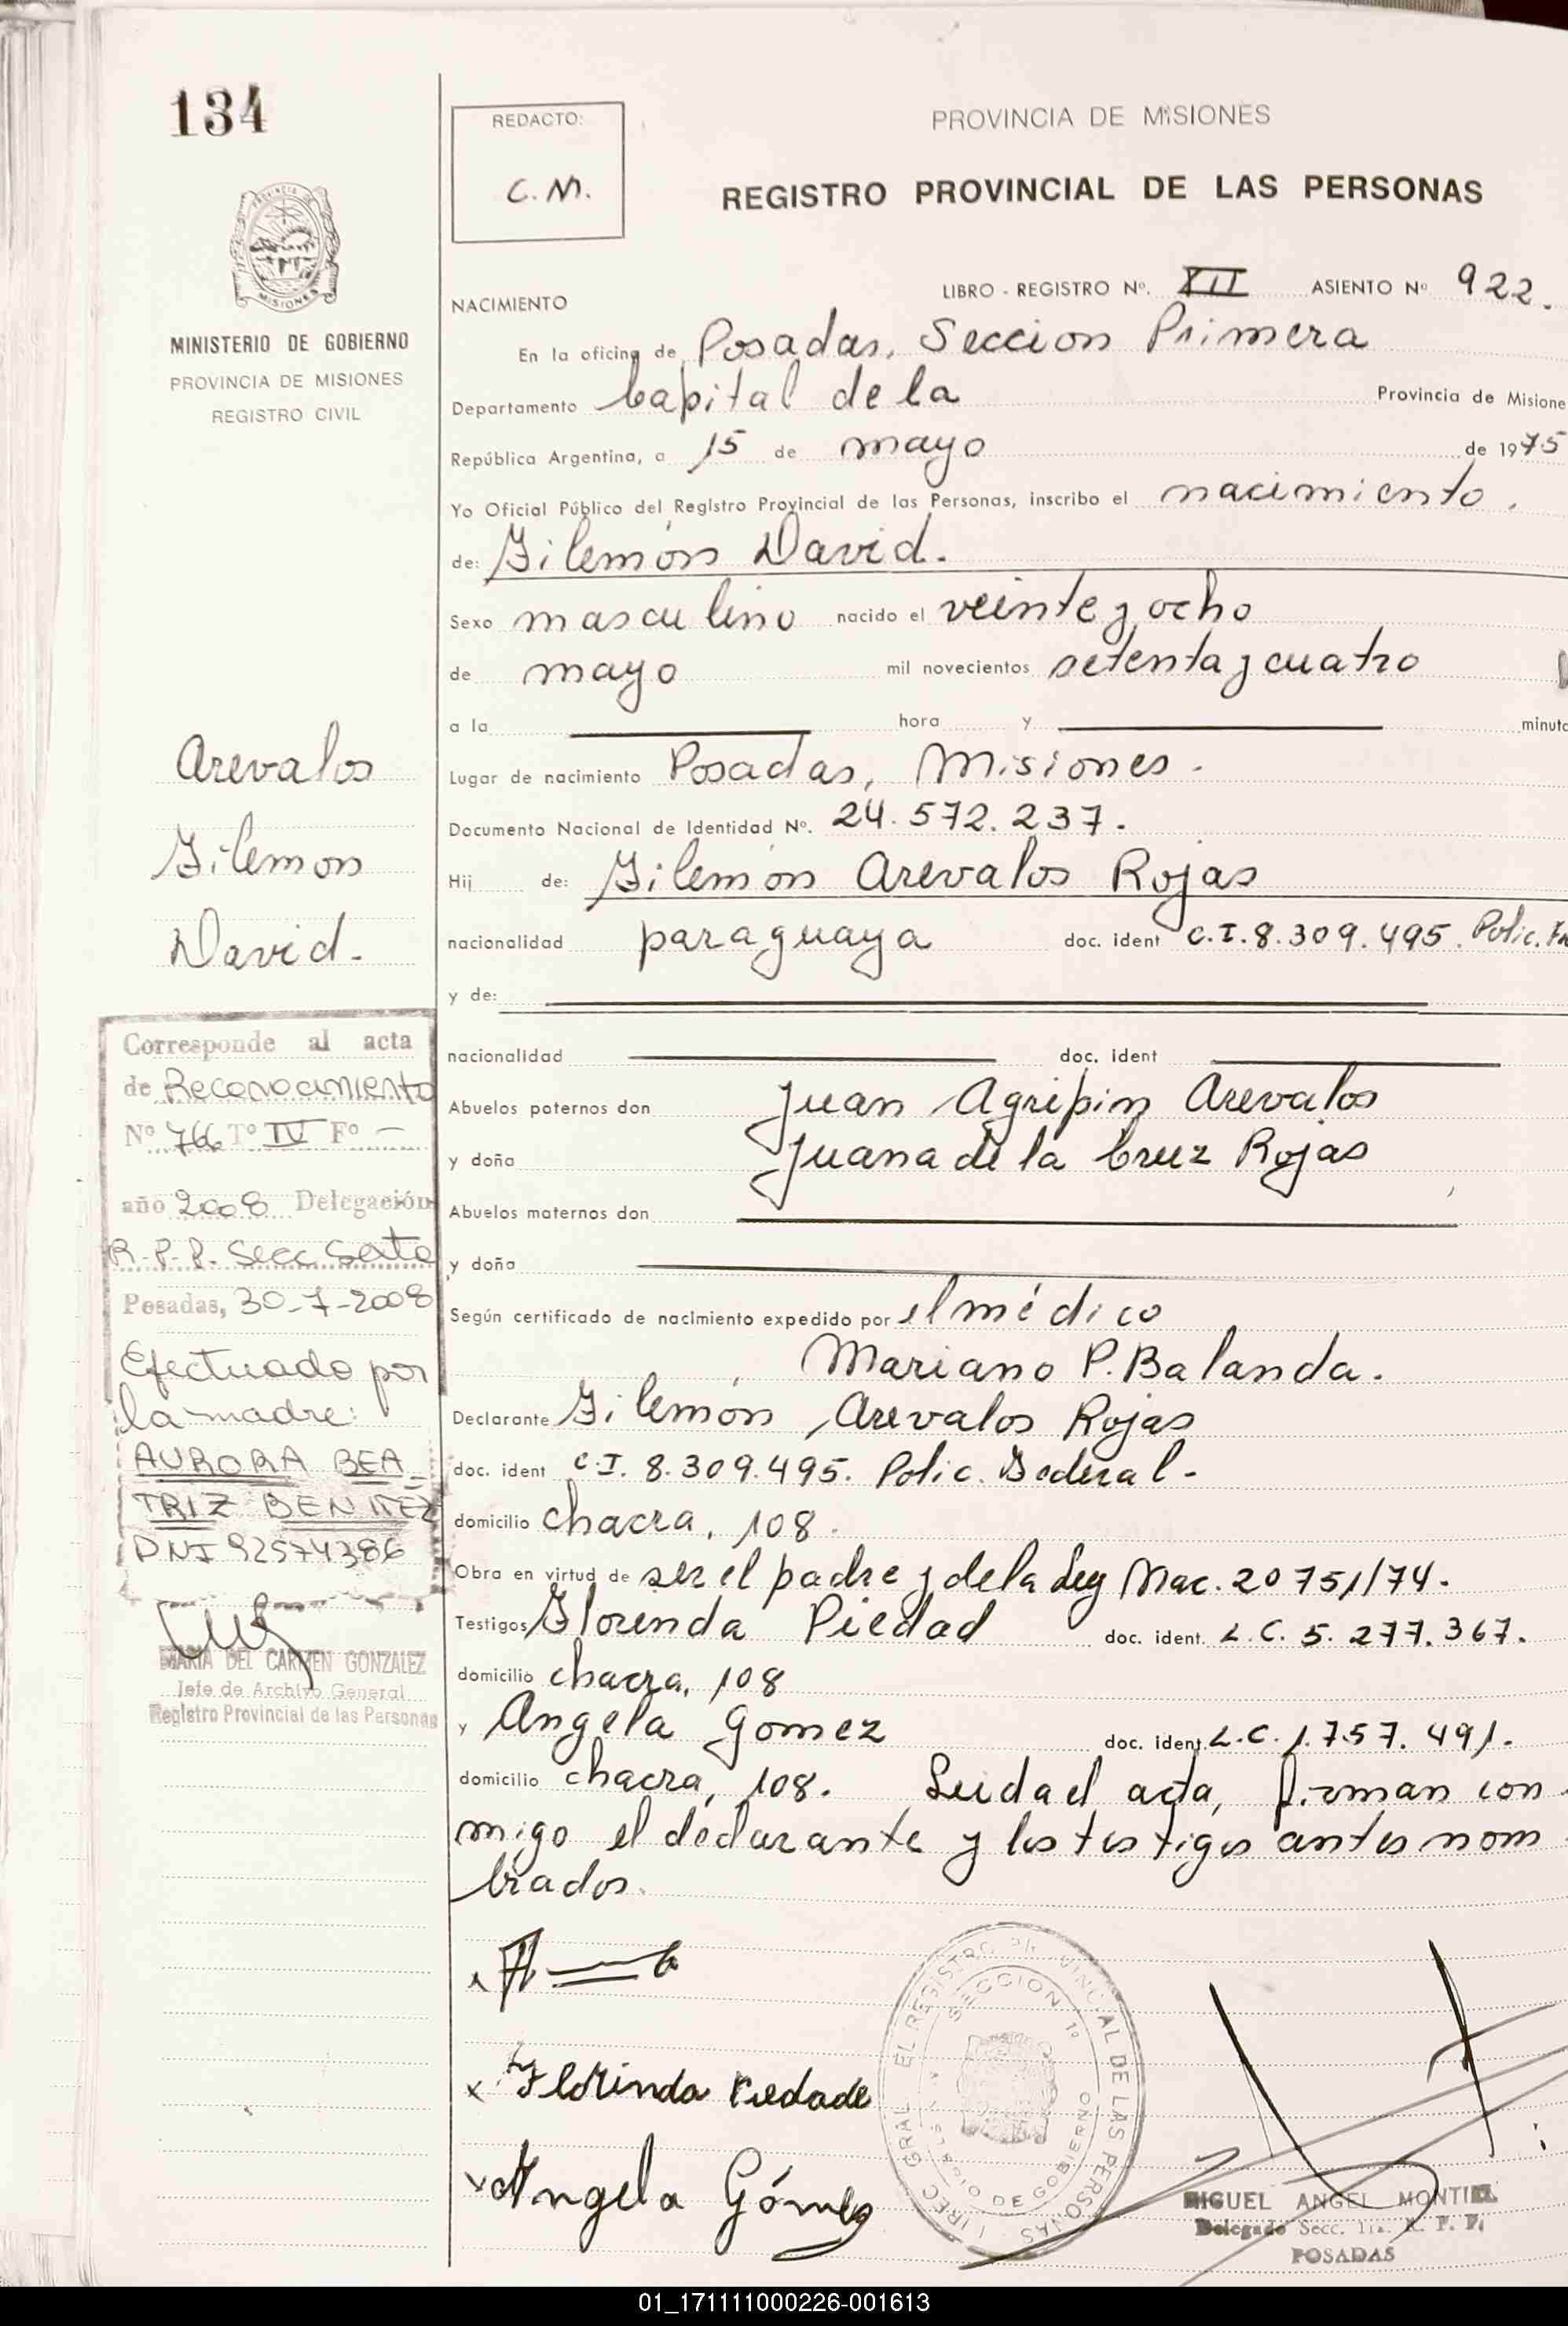 134
REDACTO:
C.M.
PROVINCIA DE MISIONES
REGISTRO PROVINCIAL DE LAS PERSONAS
MINISTERIO DE GOBIERNO
PROVINCIA DE MISIONES
REGISTRO CIVIL
NACIMIENTO
LIBRO - REGISTRO Nº. XII ASIENTO Nº 922.
En la oficina de Posadas, Seccion Primera
Departamento Capital de la Provincia de Misione
República Argentina, a 15 de mayo de 1975
Yo Oficial Público del Registro Provincial de las Personas, inscribo el nacimiento.
de: Filemón David.
Sexo masculino nacido el veinte y ocho
de mayo mil novecientos setenta y cuatro
a la hora y minuto
Lugar de nacimiento Posadas, Misiones.
Documento Nacional de Identidad Nº. 24.572.237.
Hij de: Filemón Arevalos Rojas
nacionalidad paraguaya doc. ident C.I.8.309.495. Polic.
y de:
nacionalidad doc. ident
Abuelos paternos don Juan Agripin Arevalos
y doña Juana de la Cruz Rojas
Abuelos maternos don
y doña
Según certificado de nacimiento expedido por el médico
Mariano P. Balanda.
Declarante Filemón Arevalos Rojas
doc. ident C.I. 8.309.495. Polic. Federal-
domicilio chacra, 108.
Obra en virtud de ser el padre y de la Ley Nac. 20751/74.
Testigos Florenda Piedad doc. ident. L.C. 5.277.367.
domicilio chacra, 108
y Angela Gomez doc. ident. L.C. 1.757.491.
domicilio chacra, 108. Leida el acta, firman con
migo el declarante y los testigos antes nom
brados.
Arevalos
Filemon
David.
Corresponde al acta
de Reconocimiento
Nº 766 Tº IV Fº -
año 2008 Delegación
R.P.P. Secc. Sexta
Posadas, 30-7-2008
Efectuado por
la madre:
AURORA BEA
TRIZ BENITEZ
DNI 92574386
MARIA DEL CARMEN GONZALEZ
Jefe de Archivo General
Registro Provincial de las Personas
x Florinda Piedade
x Angela Gómez
DIREC GRAL EL REGISTRO PROVINCIAL DE LAS PERSONAS
SECCION 1º
DE GOBIERNO
MIGUEL ANGEL MONTIEL
Delegado Secc. 1ra. R. P. P.
POSADAS
01_171111000226-001613